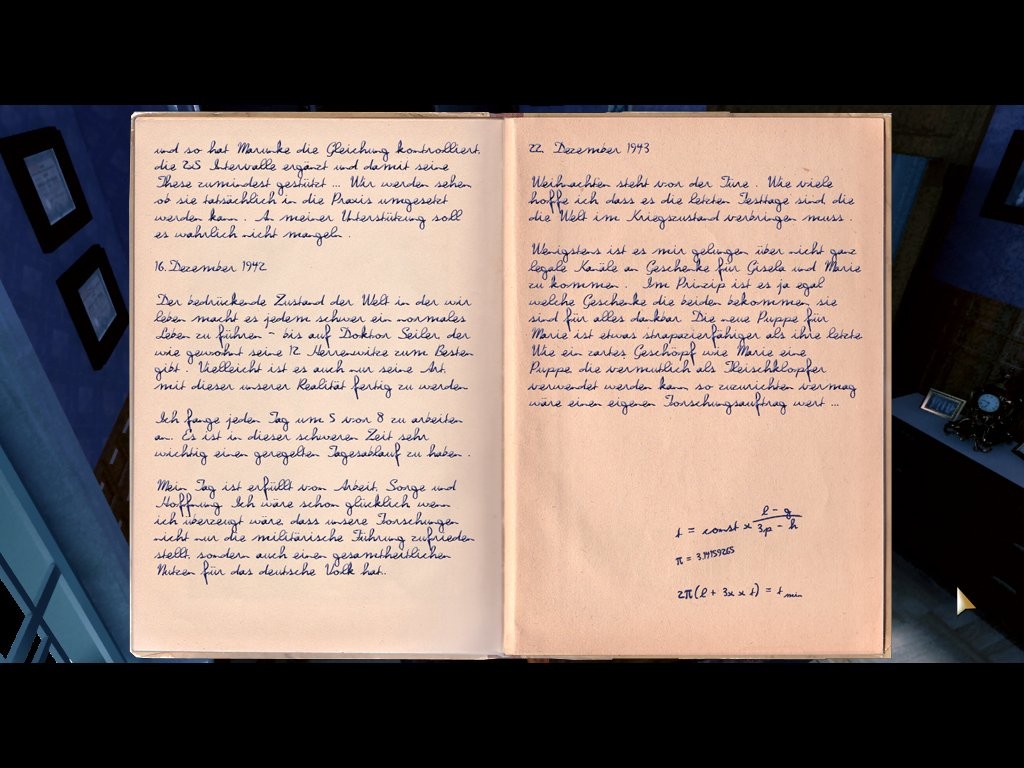 und so hat Marunke die Gleichung kontrolliert,
die 25 Intervalle ergänzt und damit seine
These zumindest gestützt ... Wir werden sehen
ob sie tatsächlich in die Praxis umgesetzt
werden kann. An meiner Unterstützung soll
es wahrlich nicht mangeln.
16. Dezember 1942
Der bedrückende Zustand der Welt in der wir
leben macht es jedem schwer ein normales
Leben zu führen - bis auf Doktor Seiler, der
wie gewohnt seine 12 Herrenwitze zum Besten
gibt. Vielleicht ist es auch nur seine Art,
mit dieser unserer Realität fertig zu werden
Ich fange jeden Tag um 5 vor 8 zu arbeiten
an. Es ist in dieser schweren Zeit sehr
wichtig einen geregelten Tagesablauf zu haben.
Mein Tag ist erfüllt von Arbeit, Sorge und
Hoffnung. Ich wäre schon glücklich wenn
ich überzeugt wäre dass unsere Forschungen
nicht nur die militärische Führung zufrieden
stellt, sondern auch einen gesamtheitlichen
Nutzen für das deutsche Volk hat..
22. Dezember 1943
Weihnachten steht vor der Türe. Wie viele
hoffe ich dass es die letzten Festtage sind die
die Welt im Kriegszustand verbringen muss.
Wenigstens ist es mir gelungen über nicht ganz
legale Kanäle an Geschenke für Gisela und Marie
zu kommen. Im Prinzip ist es ja egal
welche Geschenke die beiden bekommen, sie
sind für alles dankbar. Die neue Puppe für
Marie ist etwas strapazierfähiger als ihre letzte.
Wie ein zartes Geschöpf wie Marie eine
Puppe die vermutlich als Fleischklopfer
verwendet werden kann so zuzurichten vermag
wäre einen eigenen Forschungsauftrag wert ...
t = const x (l - g) / (3p - h)
π = 3.14159265
2π(l + 3x x t) = t min